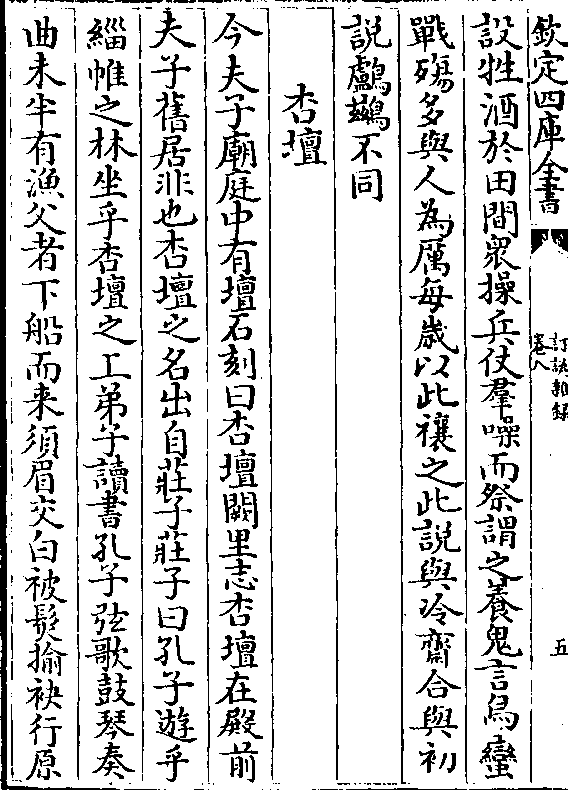 欽定四庫全書
訂訛雜錄
卷八
五
設牲酒於田間衆操兵仗羣噪而祭謂之養鬼言烏蠻
戰殤多與人為厲每歲以此禳之此說與冷齋合與初
說鸕鷀不同
杏壇
今夫子廟庭中有壇石刻曰杏壇闕里志杏壇在殿前
夫子舊居非也杏壇之名出自莊子莊子曰孔子遊乎
緇帷之林坐乎杏壇之上弟子讀書孔子弦歌鼓琴奏
曲未半有漁父者下船而来須眉交白被髮揄袂行原